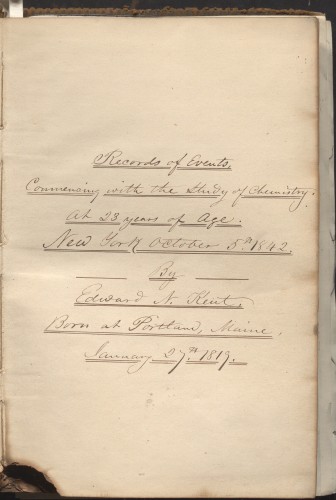 Records of Events,
Commencing with the Study of Chemistry.
At 23 years of Age.
New York October 5th 1842.
By
Edward N. Kent,
Born at Portland, Maine,
January 27th 1819.